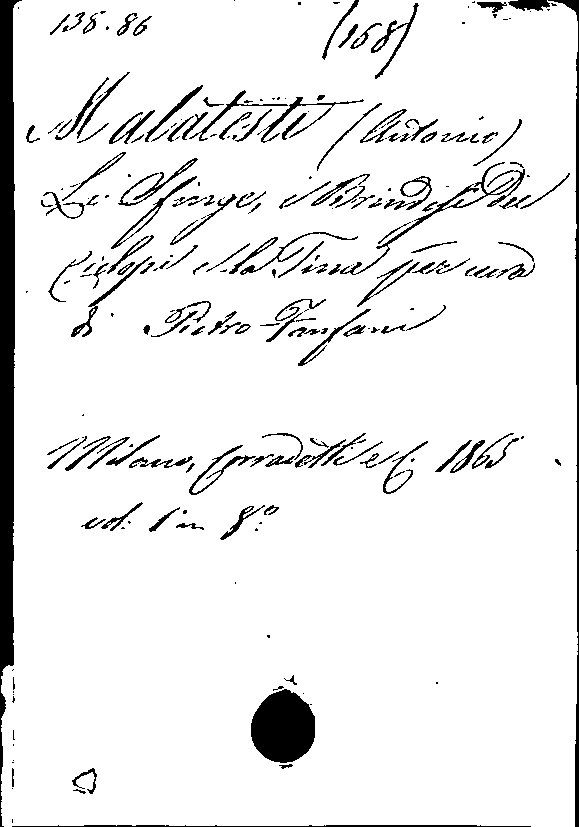 138.86 (168)
Malatesti (Antonio)
Le Sfinge, i Brindisi dei
Ciclopi e la Tina per cura
di Pietro Fanfani
Milano, Corradetti e C. 1865
vol: 1 in 8º